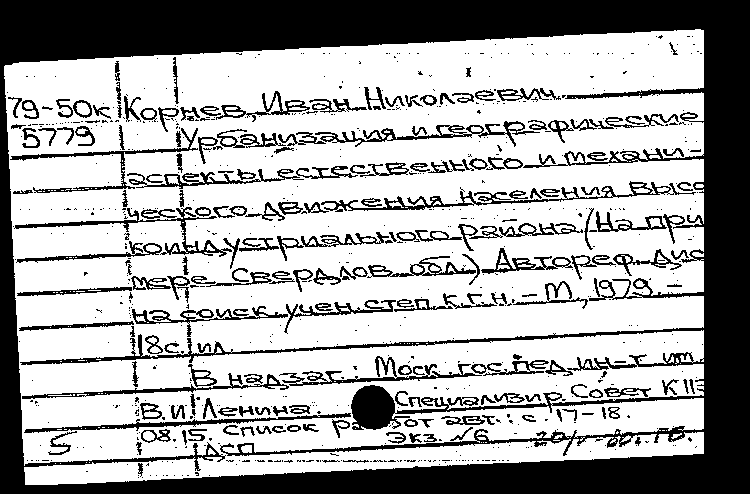 79-50к Корнев, Иван Николаевич.
5779 Урбанизация и географические
аспекты естественного и механи-
ческого движения населения высо
коиндустриального района: (На при
мере Свердлов. обл.) Автореф. дис
на соиск. учен. степ. к.г.н. - М., 1979. -
18с. ил.
В надзаг.: Моск. гос. пед. ин-т им.
В.И. Ленина. Специализир. Совет К 113
08.15. Список работ авт.: с. 17-18.
5 ДСП Экз. №6 20/V-80. ГБ.